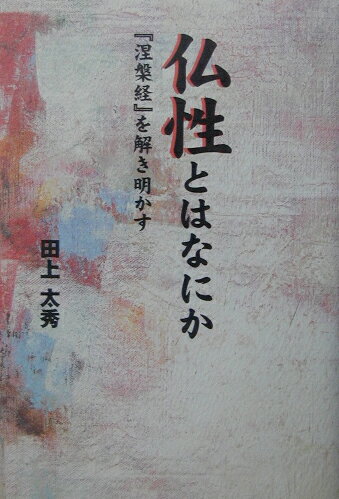 仏性とはなにか
『涅槃経』を解き明かす
田上太秀